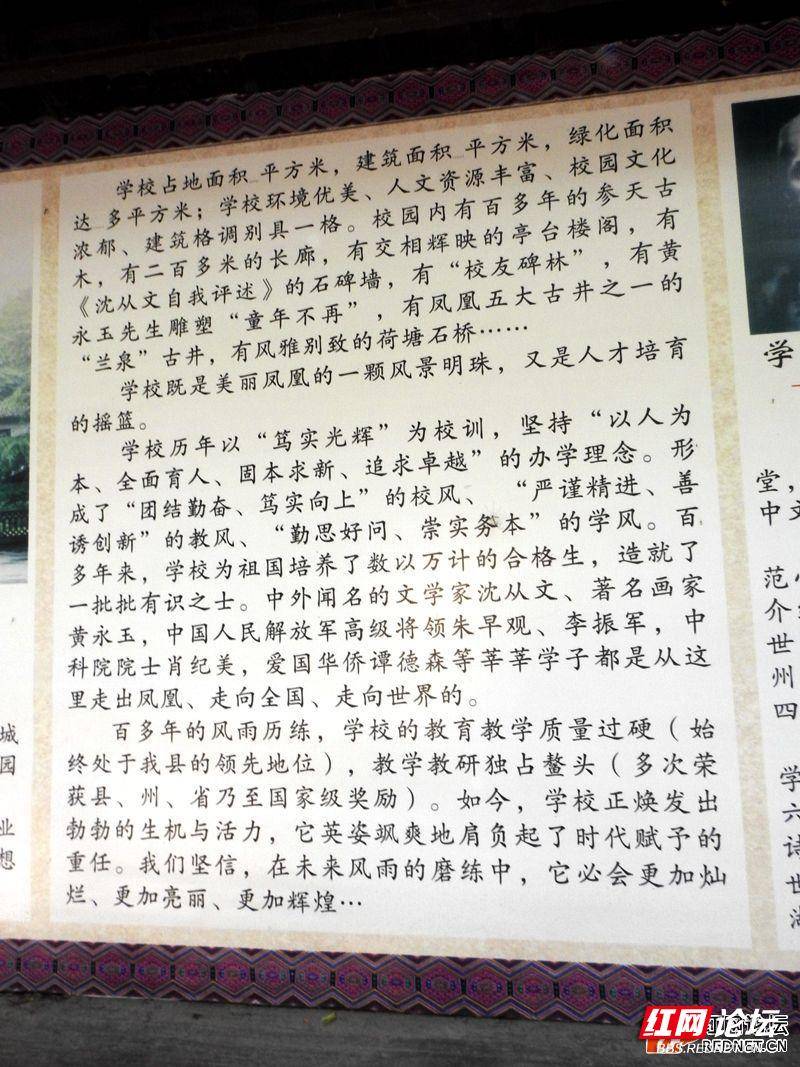 学校占地面积 平方米，建筑面积 平方米，绿化面积
达 多平方米；学校环境优美、人文资源丰富、校园文化
浓郁、建筑格调别具一格。校园内有百多年的参天古
木，有二百多米的长廊，有交相辉映的亭台楼阁，有
《沈从文自我评述》的石碑墙，有“校友碑林”，有黄
永玉先生雕塑“童年不再”，有凤凰五大古井之一的
“兰泉”古井，有风雅别致的荷塘石桥……
学校既是美丽凤凰的一颗风景明珠，又是人才培育
的摇篮。
学校历年以“笃实光辉”为校训，坚持“以人为
本、全面育人、固本求新、追求卓越”的办学理念。形
成了“团结勤奋、笃实向上”的校风、“严谨精进、善
诱创新”的教风、“勤思好问、崇实务本”的学风。百
多年来，学校为祖国培养了数以万计的合格生，造就了
一批批有识之士。中外闻名的文学家沈从文、著名画家
黄永玉，中国人民解放军高级将领朱早观、李振军，中
科院院士肖纪美，爱国华侨谭德森等莘莘学子都是从这
里走出凤凰、走向全国、走向世界的。
百多年的风雨历练，学校的教育教学质量过硬（始
终处于我县的领先地位），教学教研独占鳌头（多次荣
获县、州、省乃至国家级奖励）。如今，学校正焕发出
勃勃的生机与活力，它英姿飒爽地肩负起了时代赋予的
重任。我们坚信，在未来风雨的磨练中，它必会更加灿
烂、更加亮丽、更加辉煌…
城
园
业
想
学
堂，
中文
范
介
世
州
四
学
六
诗
世
红网论坛
REDNET.CN